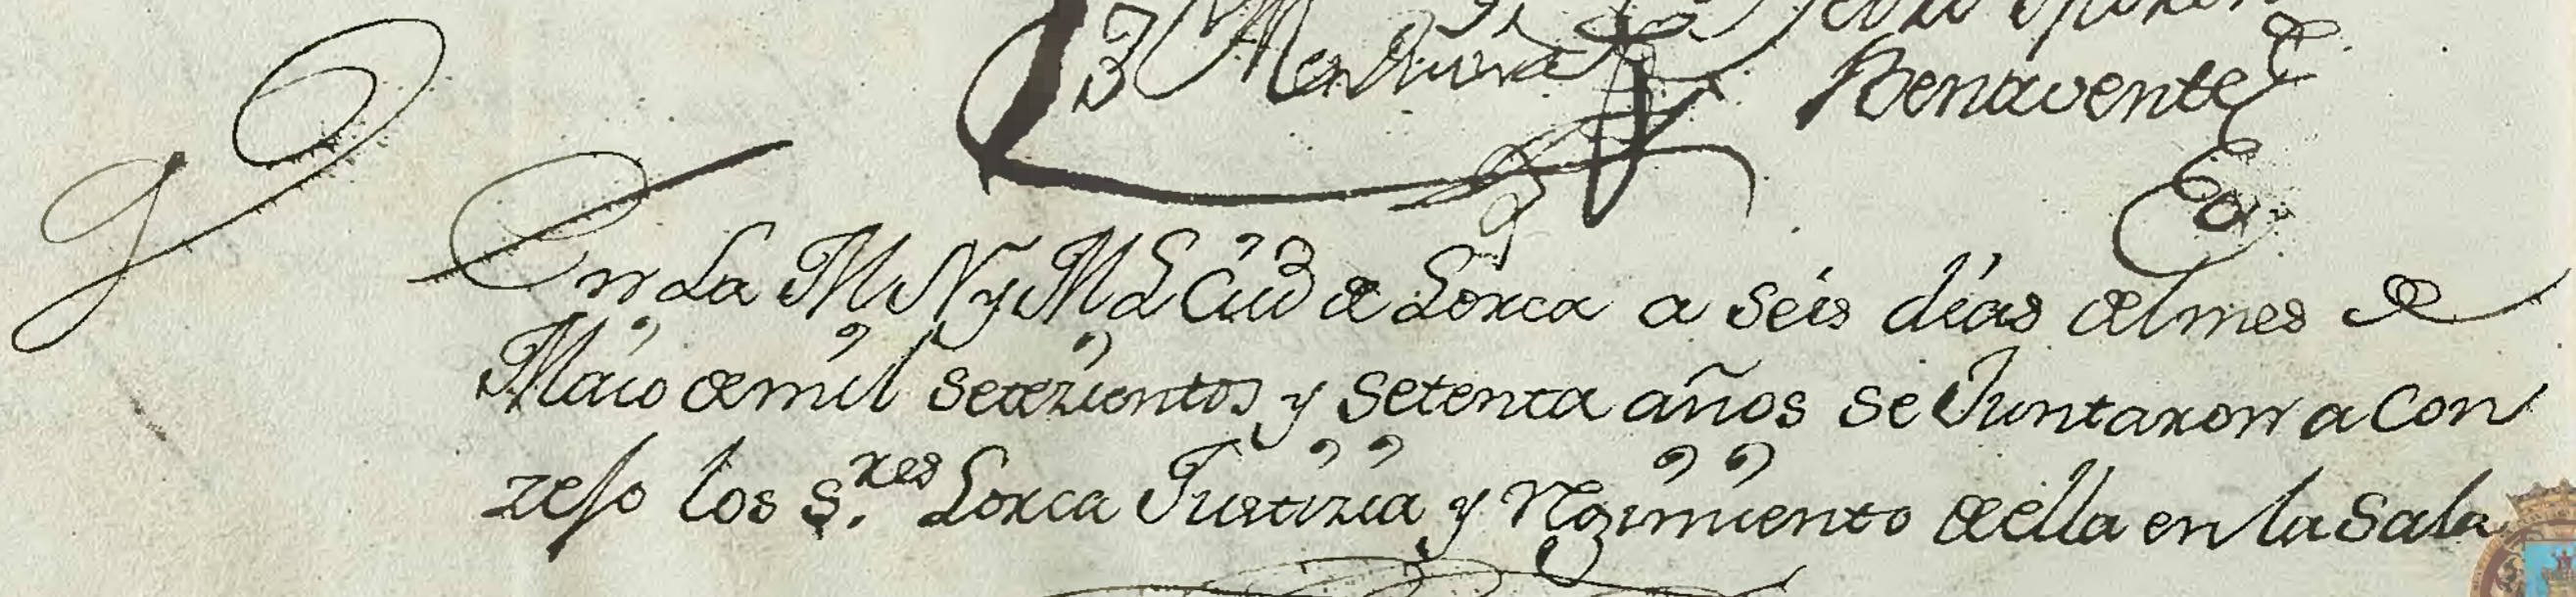 Benavente
En La M N y M L Ciud de Lorca a seis dias del mes de
Maio de mil setezientos y setenta años se Juntaron a Con
zejo los S.res Lorca Justizia y Regimiento de ella en la Sala